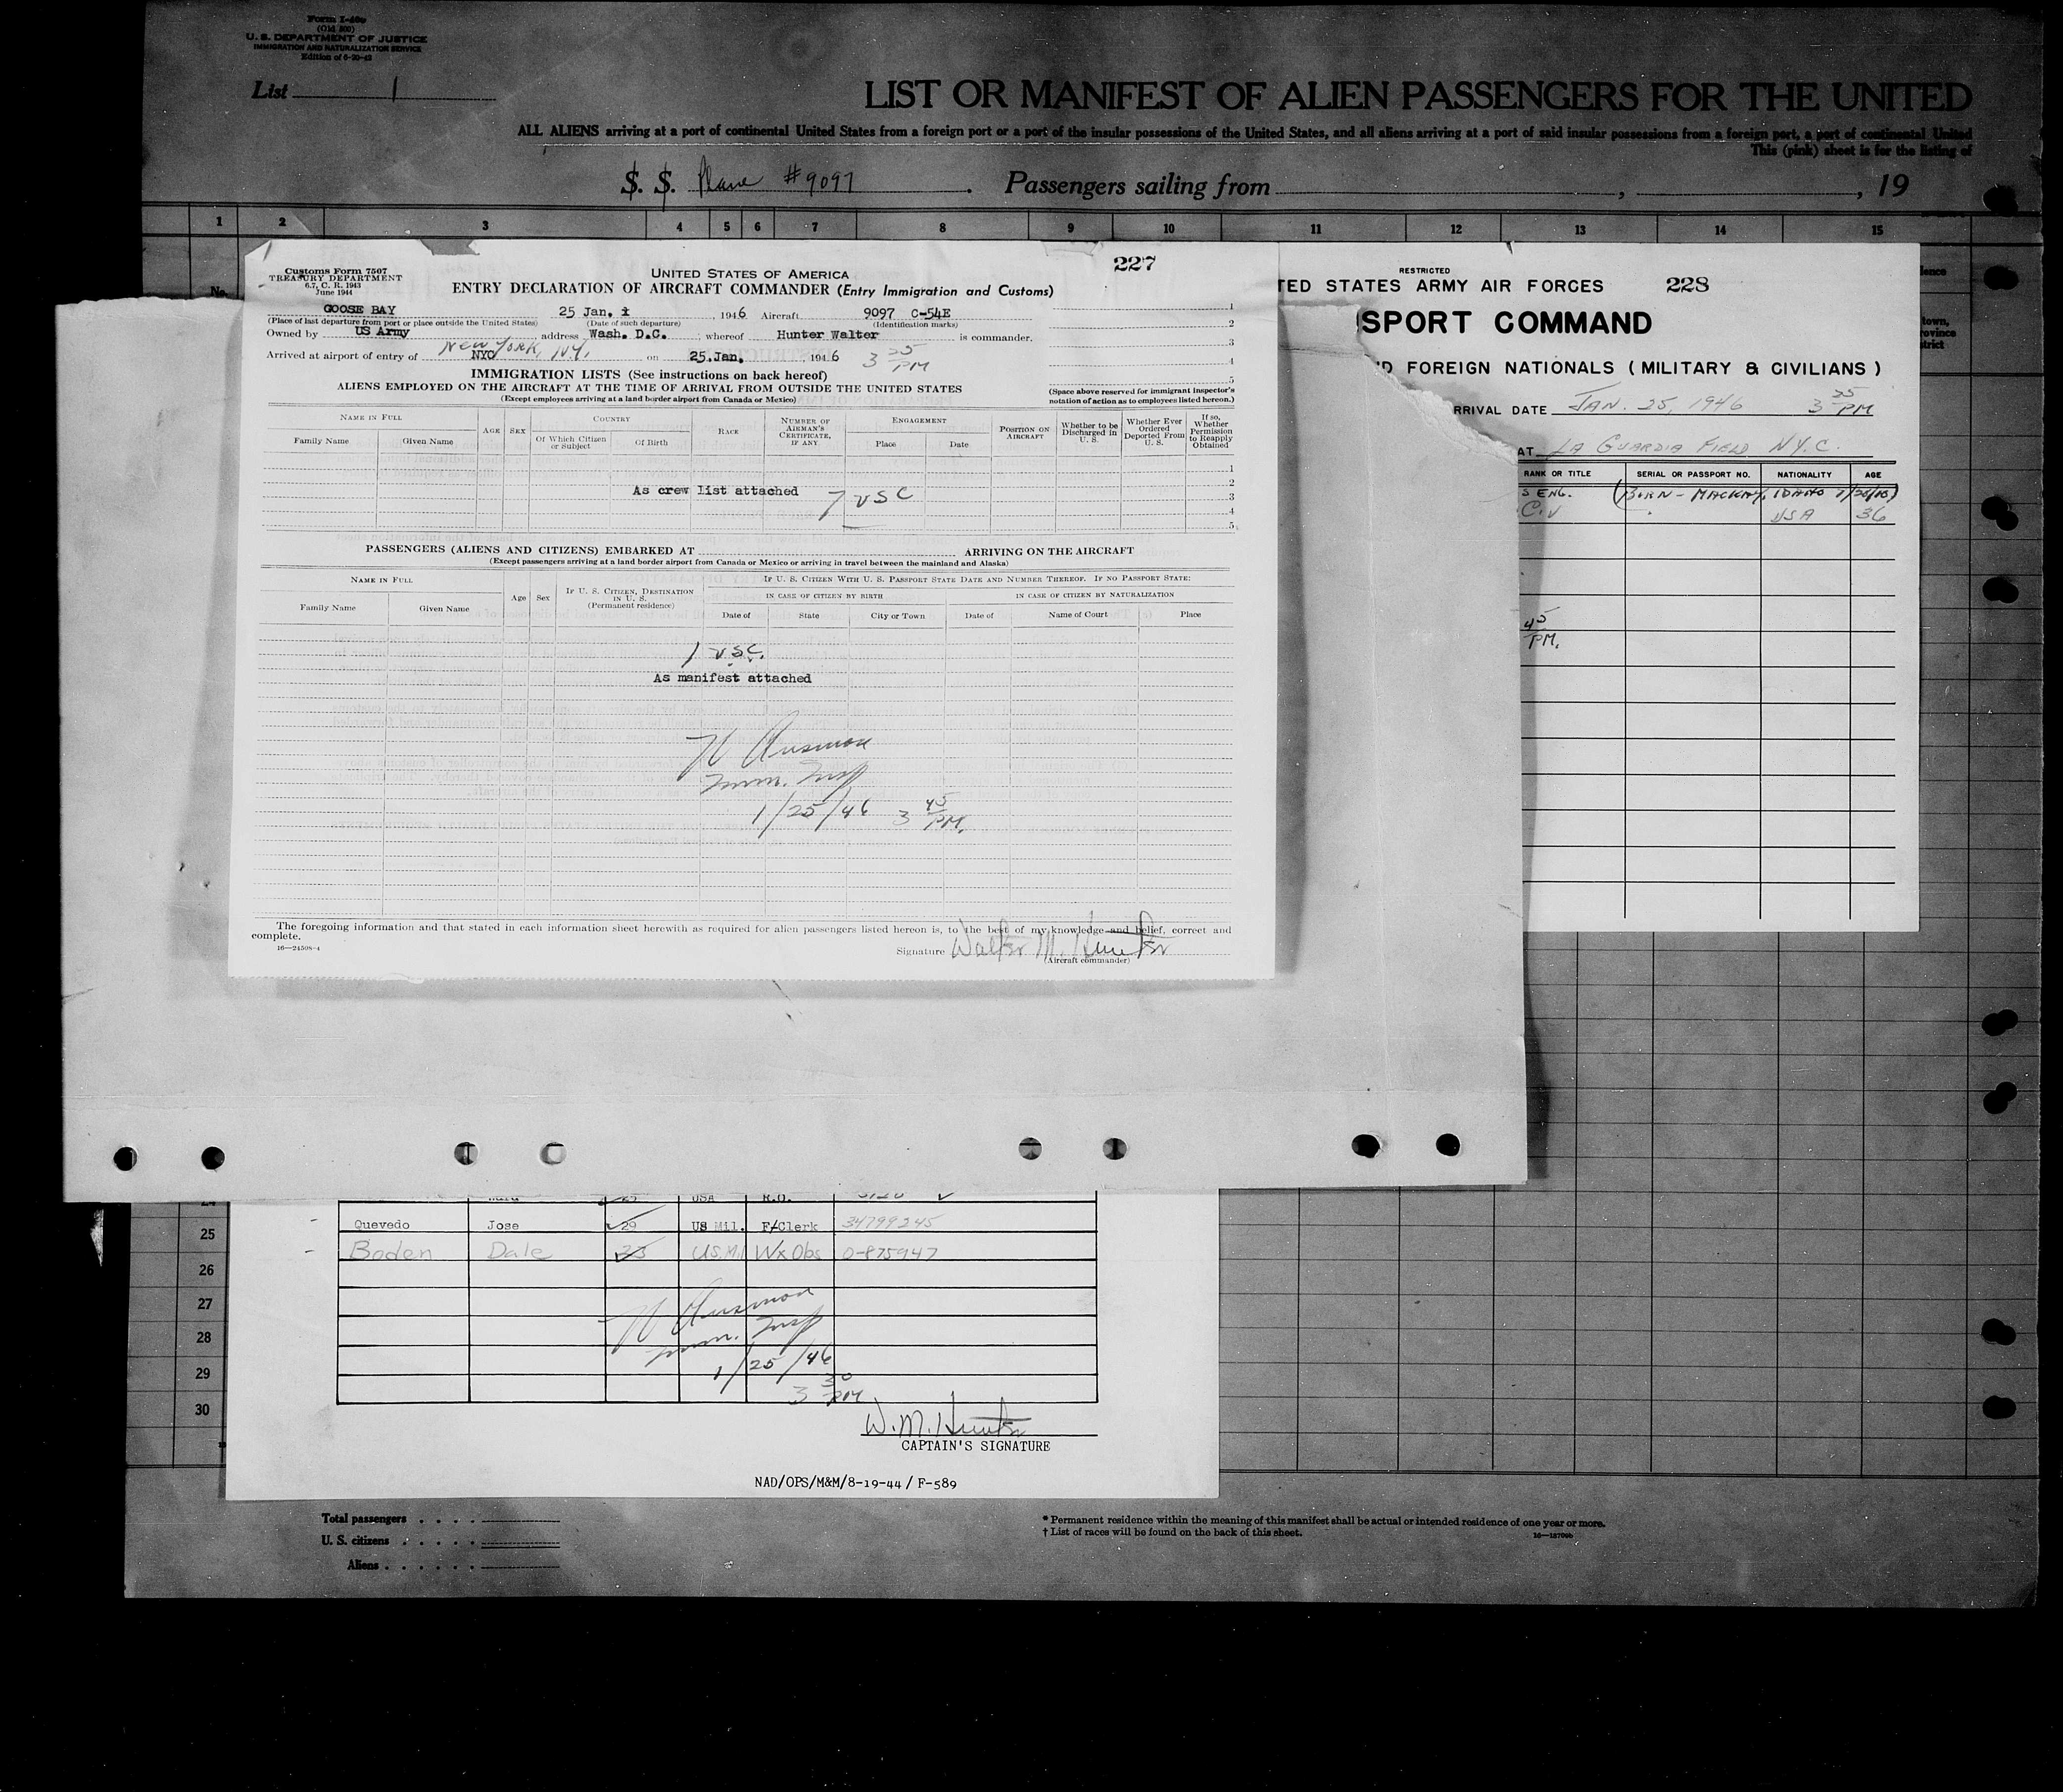 Form I-466
(Old 500)
U. S. DEPARTMENT OF JUSTICE
IMMIGRATION AND NATURALIZATION SERVICE
Edition of 6-20-42
List 1
LIST OR MANIFEST OF ALIEN PASSENGERS FOR THE UNITED
ALL ALIENS arriving at a port of continental United States from a foreign port or a port of the insular possessions of the United States, and all aliens arriving at a port of said insular possessions from a foreign port, a port of continental United
This (pink) sheet is for the listing of
S. S. Plane #9097 . Passengers sailing from , , 19
1 2 3 4 5 6 7 8 9 10 11 12 13 14 15
No.
Customs Form 7507
TREASURY DEPARTMENT
6.7, C. R. 1943
June 1944
227
UNITED STATES OF AMERICA
ENTRY DECLARATION OF AIRCRAFT COMMANDER (Entry Immigration and Customs)
GOOSE BAY 25 Jan. , 1946 Aircraft 9097 C-54E
(Place of last departure from port or place outside the United States) (Date of such departure) (Identification marks)
Owned by US Army address Wash. D.C. whereof Hunter Walter is commander.
Arrived at airport of entry of NYC New York, N.Y. on 25.Jan. , 1946 3 35 PM
IMMIGRATION LISTS (See instructions on back hereof)
ALIENS EMPLOYED ON THE AIRCRAFT AT THE TIME OF ARRIVAL FROM OUTSIDE THE UNITED STATES
(Except employees arriving at a land border airport from Canada or Mexico)
1
2
3
4
5
(Space above reserved for immigrant inspector's
notation of action as to employees listed hereon.)
NAME IN FULL
Family Name Given Name
AGE SEX
COUNTRY
Of Which Citizen or Subject Of Birth
RACE
NUMBER OF AIRMAN'S CERTIFICATE, IF ANY
ENGAGEMENT
Place Date
POSITION ON AIRCRAFT
Whether to be Discharged in U. S.
Whether Ever Ordered Deported From U. S.
If so, Whether Permission to Reapply Obtained
1
2
As crew list attached 7 USC 3
4
5
PASSENGERS (ALIENS AND CITIZENS) EMBARKED AT ARRIVING ON THE AIRCRAFT
(Except passengers arriving at a land border airport from Canada or Mexico or arriving in travel between the mainland and Alaska)
NAME IN FULL
Family Name Given Name
Age Sex
IF U. S. CITIZEN, DESTINATION IN U. S.
(Permanent residence)
IF U. S. CITIZEN WITH U. S. PASSPORT STATE DATE AND NUMBER THEREOF. IF NO PASSPORT STATE:
IN CASE OF CITIZEN BY BIRTH IN CASE OF CITIZEN BY NATURALIZATION
Date of State City or Town Date of Name of Court Place
1 USC.
As manifest attached
Imm. Insp
1/25/46 3 45 PM.
The foregoing information and that stated in each information sheet herewith as required for alien passengers listed hereon is, to the best of my knowledge and belief, correct and
complete.
16—24508-4
Signature Walter M. Hunter
(Aircraft commander)
RESTRICTED
TED STATES ARMY AIR FORCES 228
SPORT COMMAND
D FOREIGN NATIONALS ( MILITARY & CIVILIANS )
RRIVAL DATE JAN. 25, 1946 3 35 PM
AT LA GUARDIA FIELD N.Y.C.
RANK OR TITLE SERIAL OR PASSPORT NO. NATIONALITY AGE
S ENG. (BORN - MACKAY, IDAHO
USA 36
45
PM.
ence
town,
rovince
trict
24
25
26
27
28
29
30
USA R.O.
Quevedo Jose 29 US Mil. F/Clerk 34799245
Boden Dale 33 US.Mil Wx Obs 0-875947
Imm. Insp
1/25/46
3 30 PM
W. M. Hunter
CAPTAIN'S SIGNATURE
NAD/OPS/M&M/8-19-44 / F-589
Total passengers
U. S. citizens
Aliens
* Permanent residence within the meaning of this manifest shall be actual or intended residence of one year or more.
† List of races will be found on the back of this sheet.